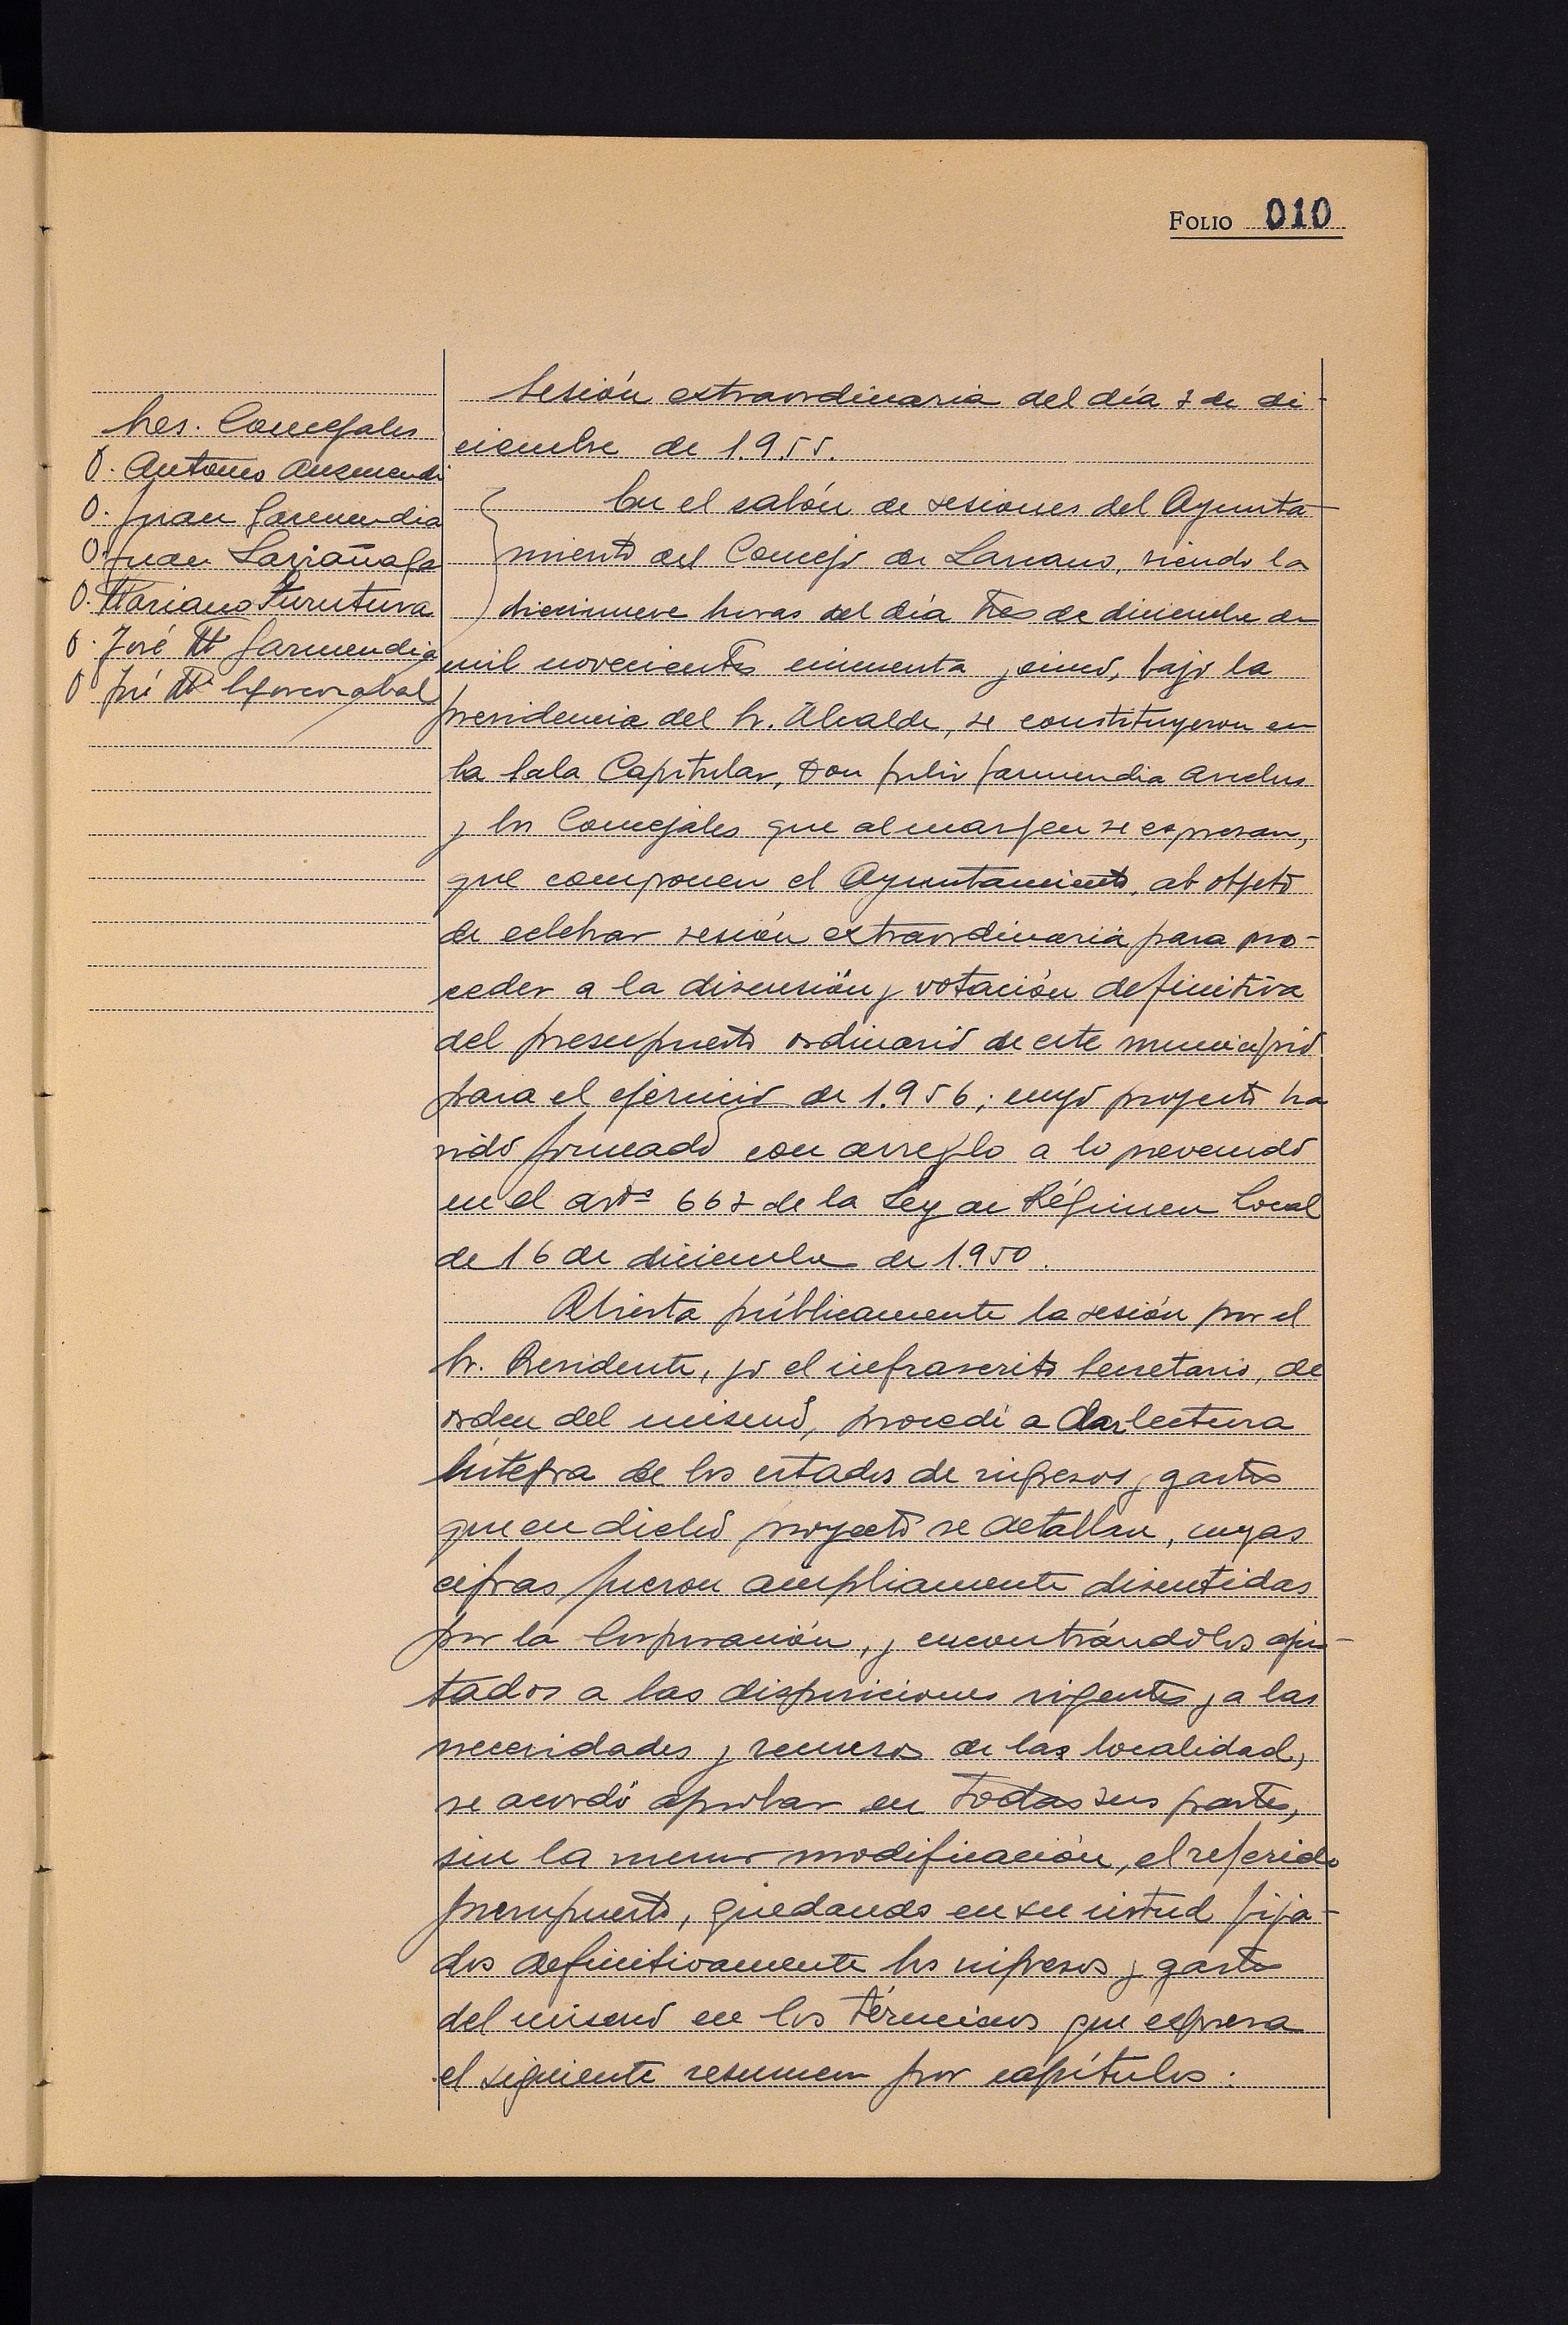 FOLIO 010
Sres. Concejales
D. Antonio Auzmendi
D. Juan Garmendia
D. Juan Larrañaga
D. Mariano Iturutuva
D. José Mª Garmendia
D. José Mª
Sesión extraordinaria del día 3 de di-
ciembre de 1.955.
En el salón de sesiones del Ayunta-
miento del Concejo de Lazcano, siendo la
diecinueve horas del día tres de diciembre de
mil novecientos cincuenta y cinco, bajo la
presidencia del Sr. Alcalde, se constituyeron en
la Sala Capitular, Don Julio Garmendia
y los Concejales que al margen se expresan,
que componen el Ayuntamiento, al objeto
de celebrar sesión extraordinaria para pro-
ceder a la discusión y votación definitiva
del presupuesto ordinario de este municipio
para el ejercicio de 1.956; cuyo proyecto ha
sido formado con arreglo a lo prevenido
en el artº 663 de la Ley de Régimen Local
de 16 de diciembre de 1.950.
Abierta públicamente la sesión por el
Sr. Presidente, yo el infrascrito Secretario, de
orden del mismo, procedí a dar lectura
íntegra de los estados de ingresos y gastos
que en dicho proyecto se detallan, cuyas
cifras fueron ampliamente discutidas
por la Corporación, y encontrándolos ajus-
tados a las disposiciones vigentes y a las
necesidades y recursos de las localidad,
se acordó aprobar en todas sus partes,
sin la menor modificación, el referido
presupuesto, quedando en su virtud fija-
dos definitivamente los ingresos y gastos
del mismo en los términos que expresa
el siguiente resumen por capítulos: